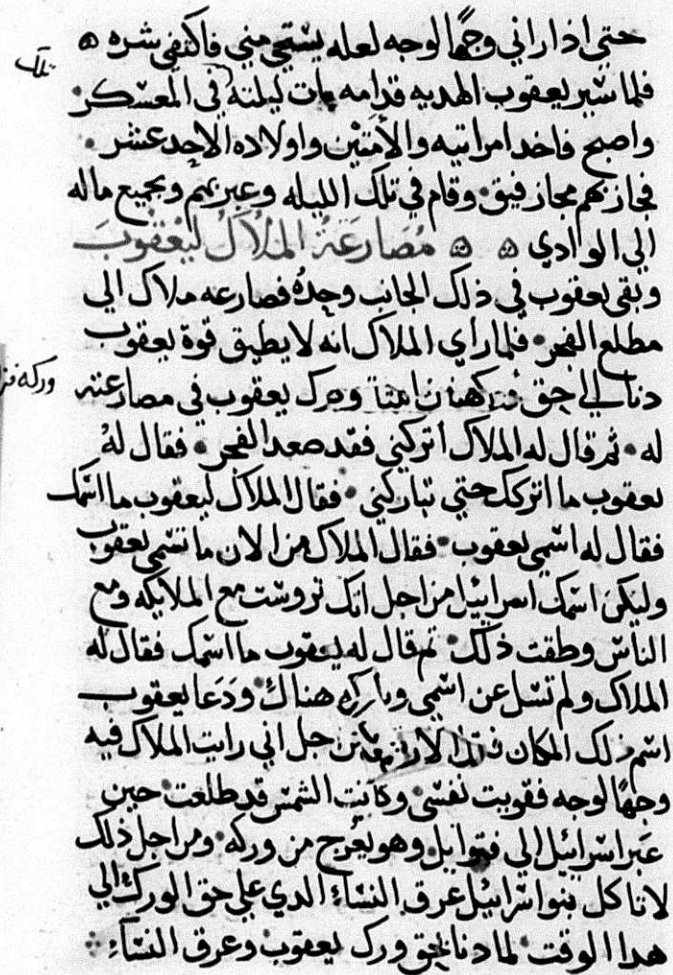 حتي اذا راني وجهًا لوجه لعله يستحي مني فاكتفي شره
تلك
فلما سير يعقوب الهديه قدامه بات ليلته في المعسكر
واصبح فاخد امراتيه والأمتين واولاده الاحد عشر
فجازبهم مجاز فيق وقام في تلك الليله وعبر بهم وبجميع ماله
الي الوادي مُصارعَةُ الملاك ليعقوبَ
وبقي يعقوب في ذلك الجانب وحدهُ فصارعه ملاك الي
مطلع الفجر فلما راي الملاك انه لا يطيق قوة يعقوب
دنا الي حق يعقوب في مصارعته
وركه
له ثم قال له الملاك اتركني فقد صعد الفجر فقال لهُ
يعقوب ما اتركك حتي تباركني فقال الملاك ليعقوب ما اسمك
فقال له اسمي يعقوب فقال الملاك من الان ما تسمي يعقوب
وليكن اسمك اسراييل من اجل انك تروست مع الملايكه ومع
الناس وطقت ذلك ثم قال له يعقوب ما اسمك فقال له
الملاك ولم تسل عن اسمي وباركه هناك ودَعَا يعقوب
اسم ذلك المكان جل اني رايت الملاك فيه
وجهًا لوجه فقويت نفسي وكانت الشمس قد طلعت حين
عَبَر اسراييل الي فنوايل وهو يعرج من وركه ومن اجل ذلك
لا تاكل بنو اسراييل عرق النساء الدي علي حق الورك الي
هدا الوقت لما دنا بحق ورك يعقوب وعرق النساء